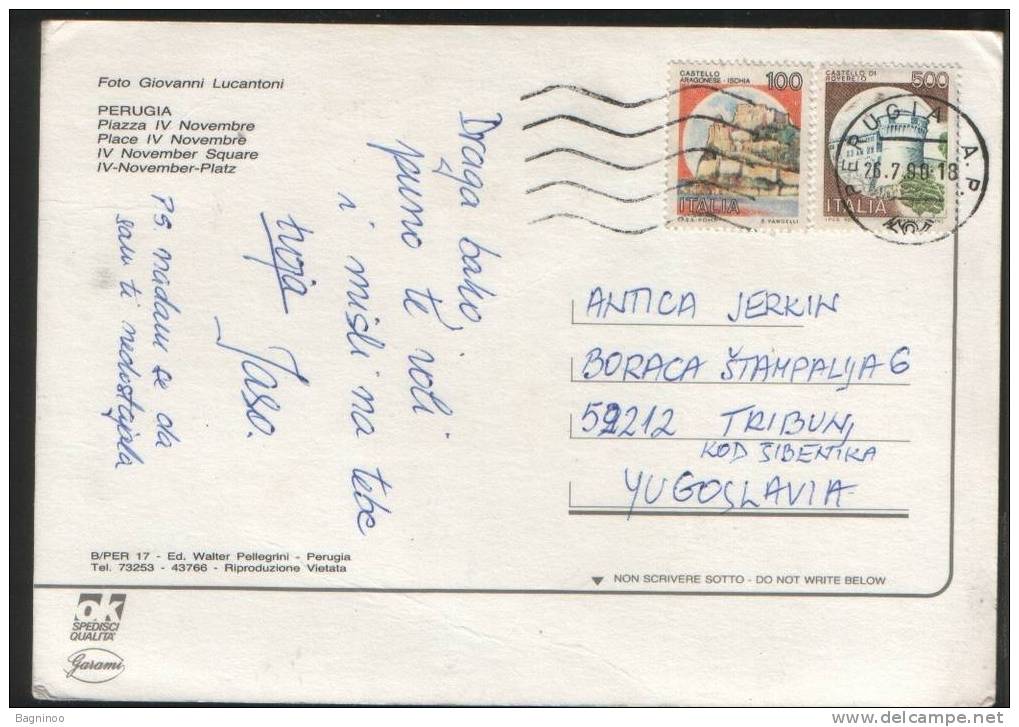 Foto Giovanni Lucantoni
PERUGIA
Piazza IV Novembre
Place IV Novembre
IV November Square
IV-November-Platz
Draga bako,
puno te voli
i misli na tebe
tvoja
Jaso.
PS. nadam se da
sam ti nedostajala
CASTELLO
ARAGONESE - ISCHIA
100
ITALIA
E. VANGELLI
CASTELLO DI
ROVERETO
500
ITALIA
PERUGIA A.P.
26.7.90.18
ANTICA JERKIN
BORACA ŠTAMPALIJA 6
59212 TRIBUNJ
KOD ŠIBENIKA
YUGOSLAVIA
B/PER 17 - Ed. Walter Pellegrini - Perugia
Tel. 73253 - 43766 - Riproduzione Vietata
▼ NON SCRIVERE SOTTO - DO NOT WRITE BELOW
ok
SPEDISCI
QUALITA'
Garami
Bagninoo
www.delcampe.net